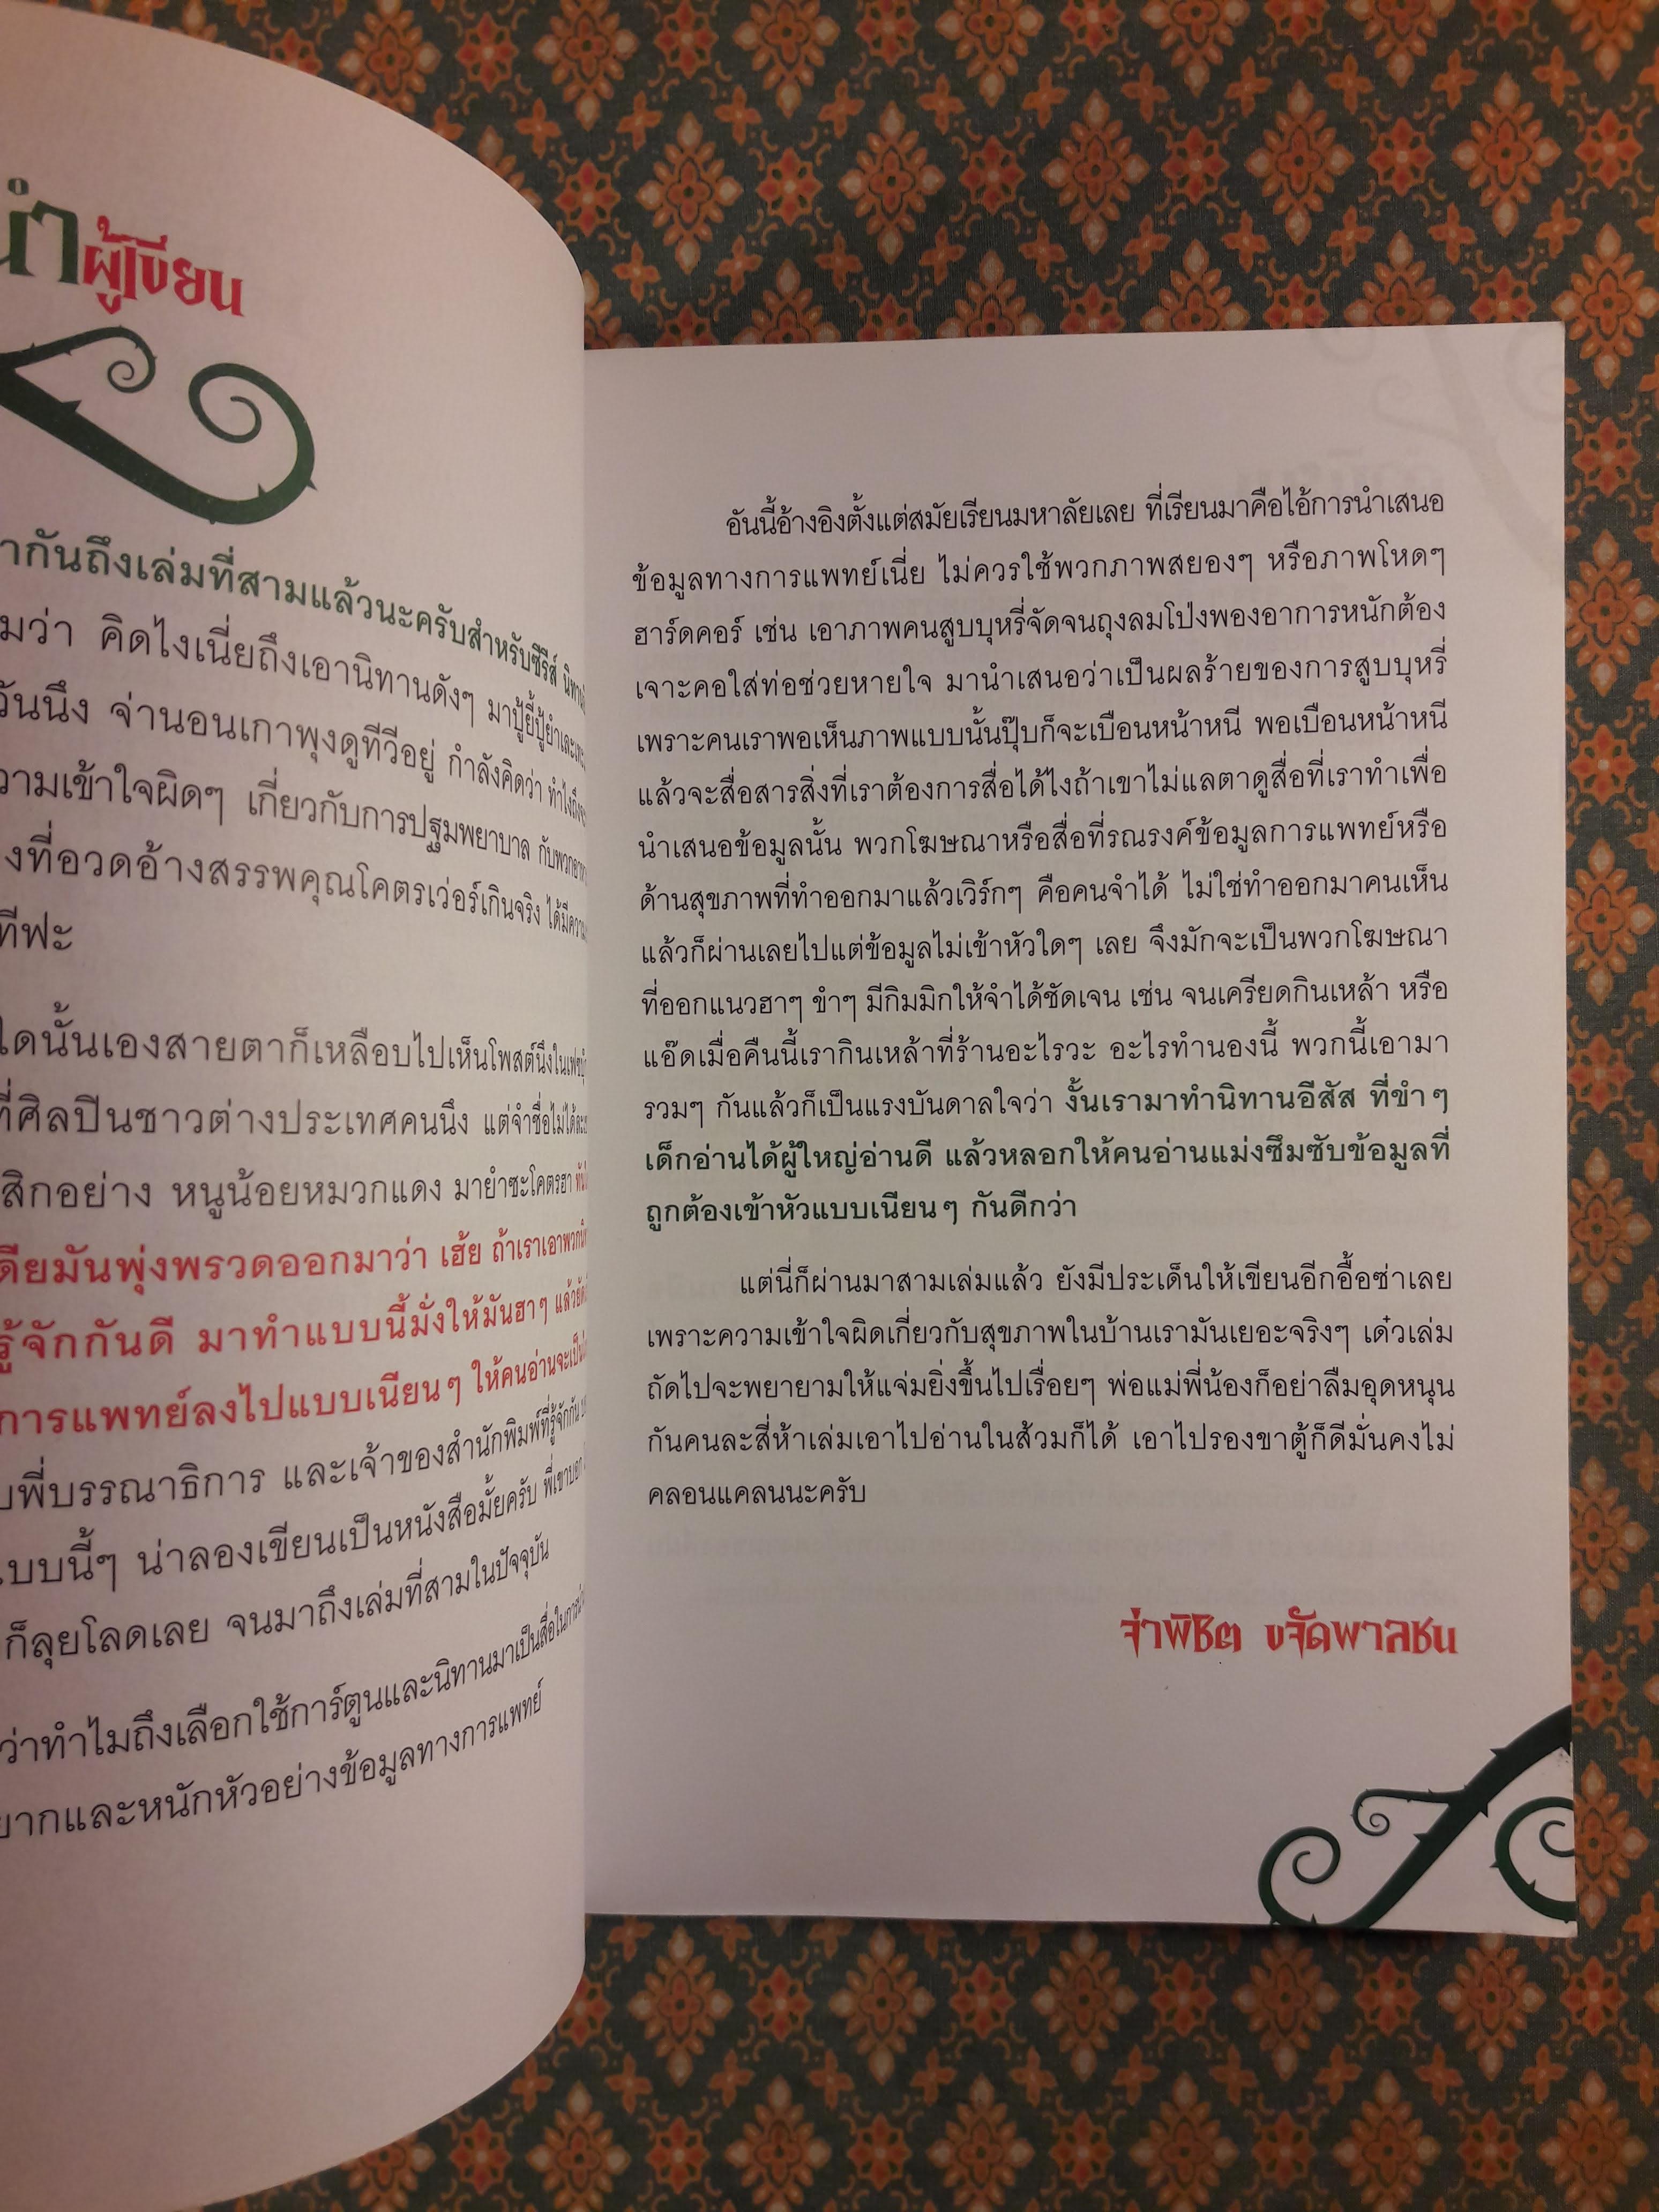 นำผู้เขียน
ากันถึงเล่มที่สามแล้วนะครับสำหรับซีรีส์
มว่า คิดไงเนี่ยถึงเอานิทานดังๆ มาปู้ยี้ปู้ยำ
วันนึง จ่านอนเกาพุงดูทีวีอยู่ กำลังคิดว่า ทำไงถึง
วามเข้าใจผิดๆ เกี่ยวกับการปฐมพยาบาล กับพวก
งที่อวดอ้างสรรพคุณโคตรเว่อร์เกินจริง ได้มี
ทีฟะ
ใดนั้นเองสายตาก็เหลือบไปเห็นโพสต์นึงใน
ที่ศิลปินชาวต่างประเทศคนนึง แต่จำชื่อไม่ได้
สิกอย่าง หนูน้อยหมวกแดง มายำซะโคตรฮา
ดียมันพุ่งพรวดออกมาว่า เฮ้ย ถ้าเราเอา
รู้จักกันดี มาทำแบบนี้มั่งให้มันฮาๆ
การแพทย์ลงไปแบบเนียนๆ ให้คนอ่าน
บพี่บรรณาธิการ และเจ้าของสำนักพิมพ์ที่รู้จักกัน
แบบนี้ๆ น่าลองเขียนเป็นหนังสือมั้ยครับ พี่เขาบอก
ก็ลุยโลดเลย จนมาถึงเล่มที่สามในปัจจุบัน
ว่าทำไมถึงเลือกใช้การ์ตูนและนิทานมาเป็นสื่อในการ
ยากและหนักหัวอย่างข้อมูลทางการแพทย์
อันนี้อ้างอิงตั้งแต่สมัยเรียนมหาลัยเลย ที่เรียนมาคือไอ้การนำเสนอ
ข้อมูลทางการแพทย์เนี่ย ไม่ควรใช้พวกภาพสยองๆ หรือภาพโหดๆ
ฮาร์ดคอร์ เช่น เอาภาพคนสูบบุหรี่จัดจนถุงลมโป่งพองอาการหนักต้อง
เจาะคอใส่ท่อช่วยหายใจ มานำเสนอว่าเป็นผลร้ายของการสูบบุหรี่
เพราะคนเราพอเห็นภาพแบบนั้นปุ๊บก็จะเบือนหน้าหนี พอเบือนหน้าหนี
แล้วจะสื่อสารสิ่งที่เราต้องการสื่อได้ไงถ้าเขาไม่แลตาดูสื่อที่เราทำเพื่อ
นำเสนอข้อมูลนั้น พวกโฆษณาหรือสื่อที่รณรงค์ข้อมูลการแพทย์หรือ
ด้านสุขภาพที่ทำออกมาแล้วเวิร์กๆ คือคนจำได้ ไม่ใช่ทำออกมาคนเห็น
แล้วก็ผ่านเลยไปแต่ข้อมูลไม่เข้าหัวใดๆ เลย จึงมักจะเป็นพวกโฆษณา
ที่ออกแนวฮาๆ ขำๆ มีกิมมิกให้จำได้ชัดเจน เช่น จนเครียดกินเหล้า หรือ
แอ๊ดเมื่อคืนนี้เรากินเหล้าที่ร้านอะไรวะ อะไรทำนองนี้ พวกนี้เอามา
รวมๆ กันแล้วก็เป็นแรงบันดาลใจว่า งั้นเรามาทำนิทานอีสัส ที่ขำๆ
เด็กอ่านได้ผู้ใหญ่อ่านดี แล้วหลอกให้คนอ่านแม่งซึมซับข้อมูลที่
ถูกต้องเข้าหัวแบบเนียนๆ กันดีกว่า
แต่นี่ก็ผ่านมาสามเล่มแล้ว ยังมีประเด็นให้เขียนอีกอื้อซ่าเลย
เพราะความเข้าใจผิดเกี่ยวกับสุขภาพในบ้านเรามันเยอะจริงๆ เด๋วเล่ม
ถัดไปจะพยายามให้แจ่มยิ่งขึ้นไปเรื่อยๆ พ่อแม่พี่น้องก็อย่าลืมอุดหนุน
กันคนละสี่ห้าเล่มเอาไปอ่านในส้วมก็ได้ เอาไปรองขาตู้ก็ดีมั่นคงไม่
คลอนแคลนนะครับ
จ่าพิชิต ขจัดพาลชน